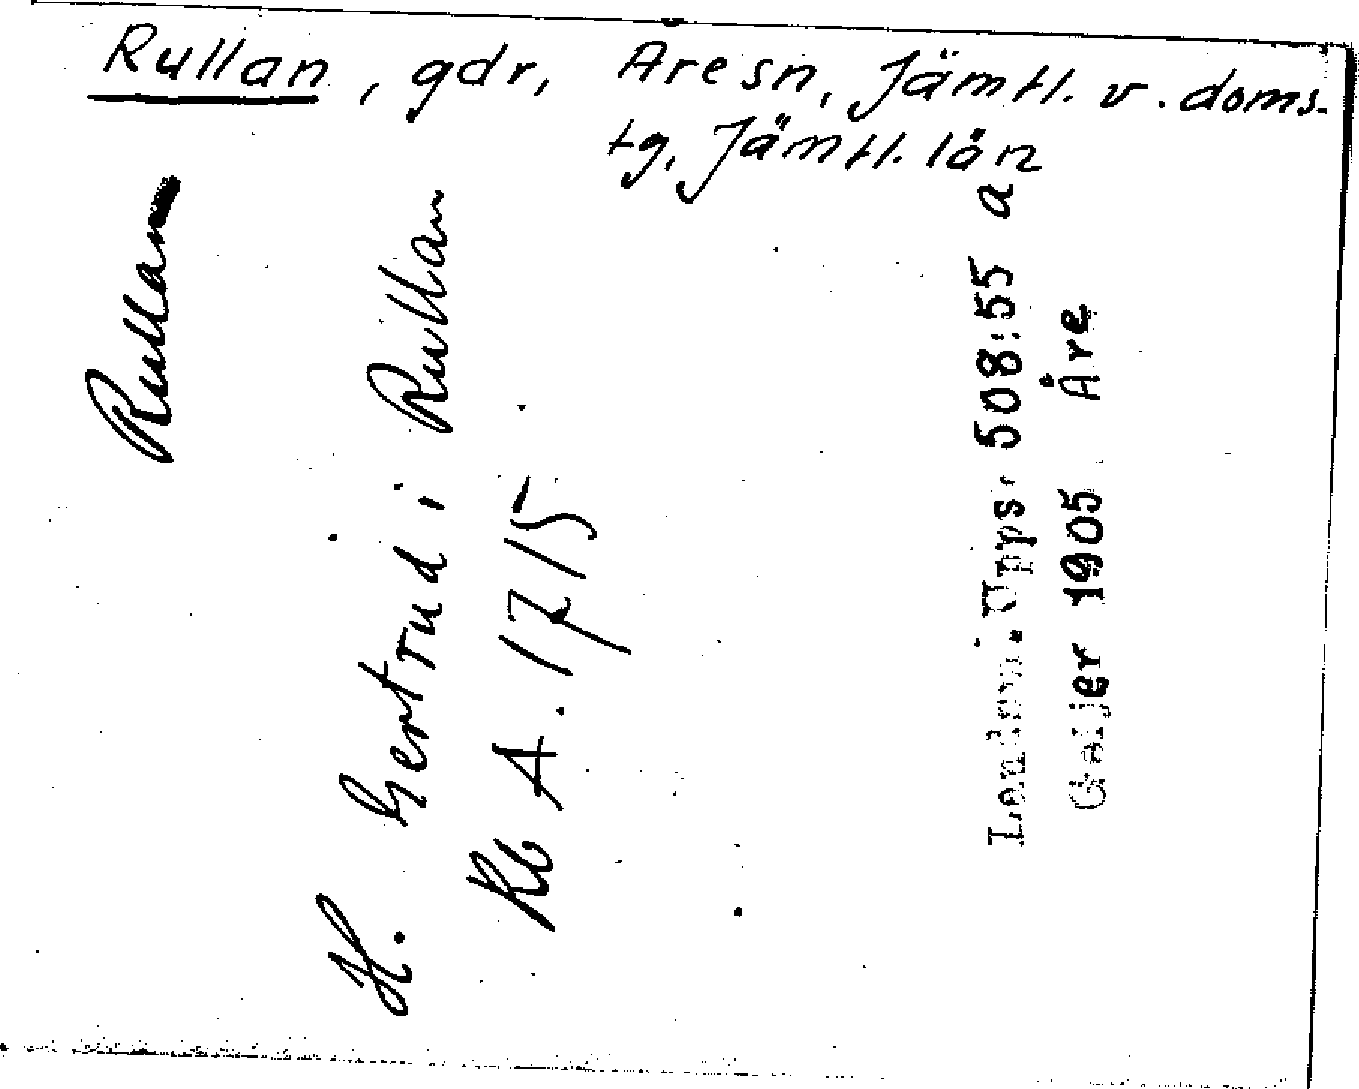 Rullan, gdr, Åresn, Jämtl. v. doms.
tg, Jämtl. län
Rullan
H. Gertrud i Rullan
Kb A. 1715
Landsm. Upps. 508:55 a
Geijer 1905 Åre